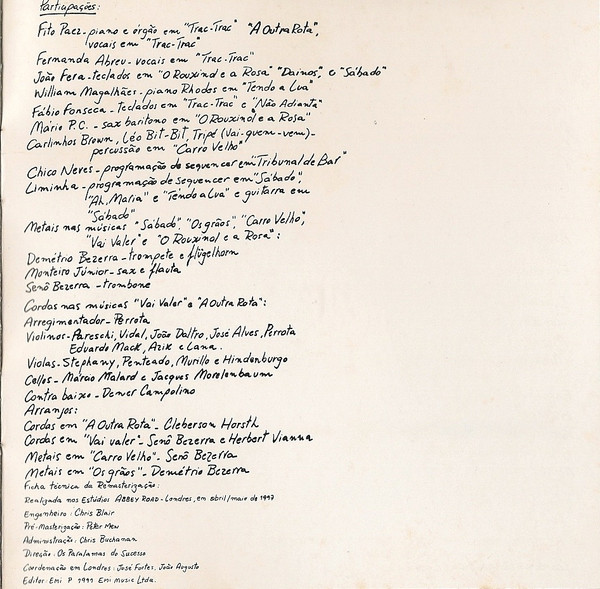 Participações:
Fito Paez - piano e órgão em "Trac-Trac" "A Outra Rota",
vocais em "Trac-Trac"
Fernanda Abreu - vocais em "Trac-Trac"
João Fera - teclados em "O Rouxinol e a Rosa" "Dainos", e "Sábado"
William Magalhães - piano Rhodes em "Tendo a Lua"
Fábio Fonseca - teclados em "Trac-Trac" e "Não Adianta"
Mário P.C. - sax baritono em "O Rouxinol e a Rosa"
Carlinhos Brown, Léo Bit-Bit, Tripé (Vai-quem-vem) -
percussão em "Carro Velho"
Chico Neves - programação de sequencer em "Tribunal de Bar"
Liminha - programação de sequencer em "Sábado",
"Ah, Maria" e "Tendo a Lua" e guitarra em
"Sábado"
Metais nas músicas "Sábado", "Os grãos", "Carro Velho",
"Vai Valer" e "O Rouxinol e a Rosa":
Demétrio Bezerra - trompete e flügelhorn
Monteiro Júnior - sax e flauta
Senô Bezerra - trombone
Cordas nas músicas "Vai Valer" e "A Outra Rota":
Arregimentador - Perrota
Violinos - Pareschi, Vidal, João Daltro, José Alves, Perrota
Eduardo Mack, Azik e Lana.
Violas - Stephany, Penteado, Murillo e Hindenburgo
Cellos - Márcio Malard e Jacques Morelenbaum
Contra baixo - Denner Campolino
Arranjos:
Cordas em "A Outra Rota" - Cleberson Horsth
Cordas em "Vai valer" - Senô Bezerra e Herbert Vianna
Metais em "Carro Velho" - Senô Bezerra
Metais em "Os grãos" - Demétrio Bezerra
Ficha técnica da Remasterização:
Realizada nos Estúdios ABBEY ROAD - Londres, em abril/maio de 1997
Engenheiro: Chris Blair
Pré-Masterização: Peter Mew
Administração: Chris Buchanan
Direção: Os Paralamas do Sucesso
Coordenação em Londres: José Fortes, João Augusto
Editor: Emi P 1991 Emi Music Ltda.